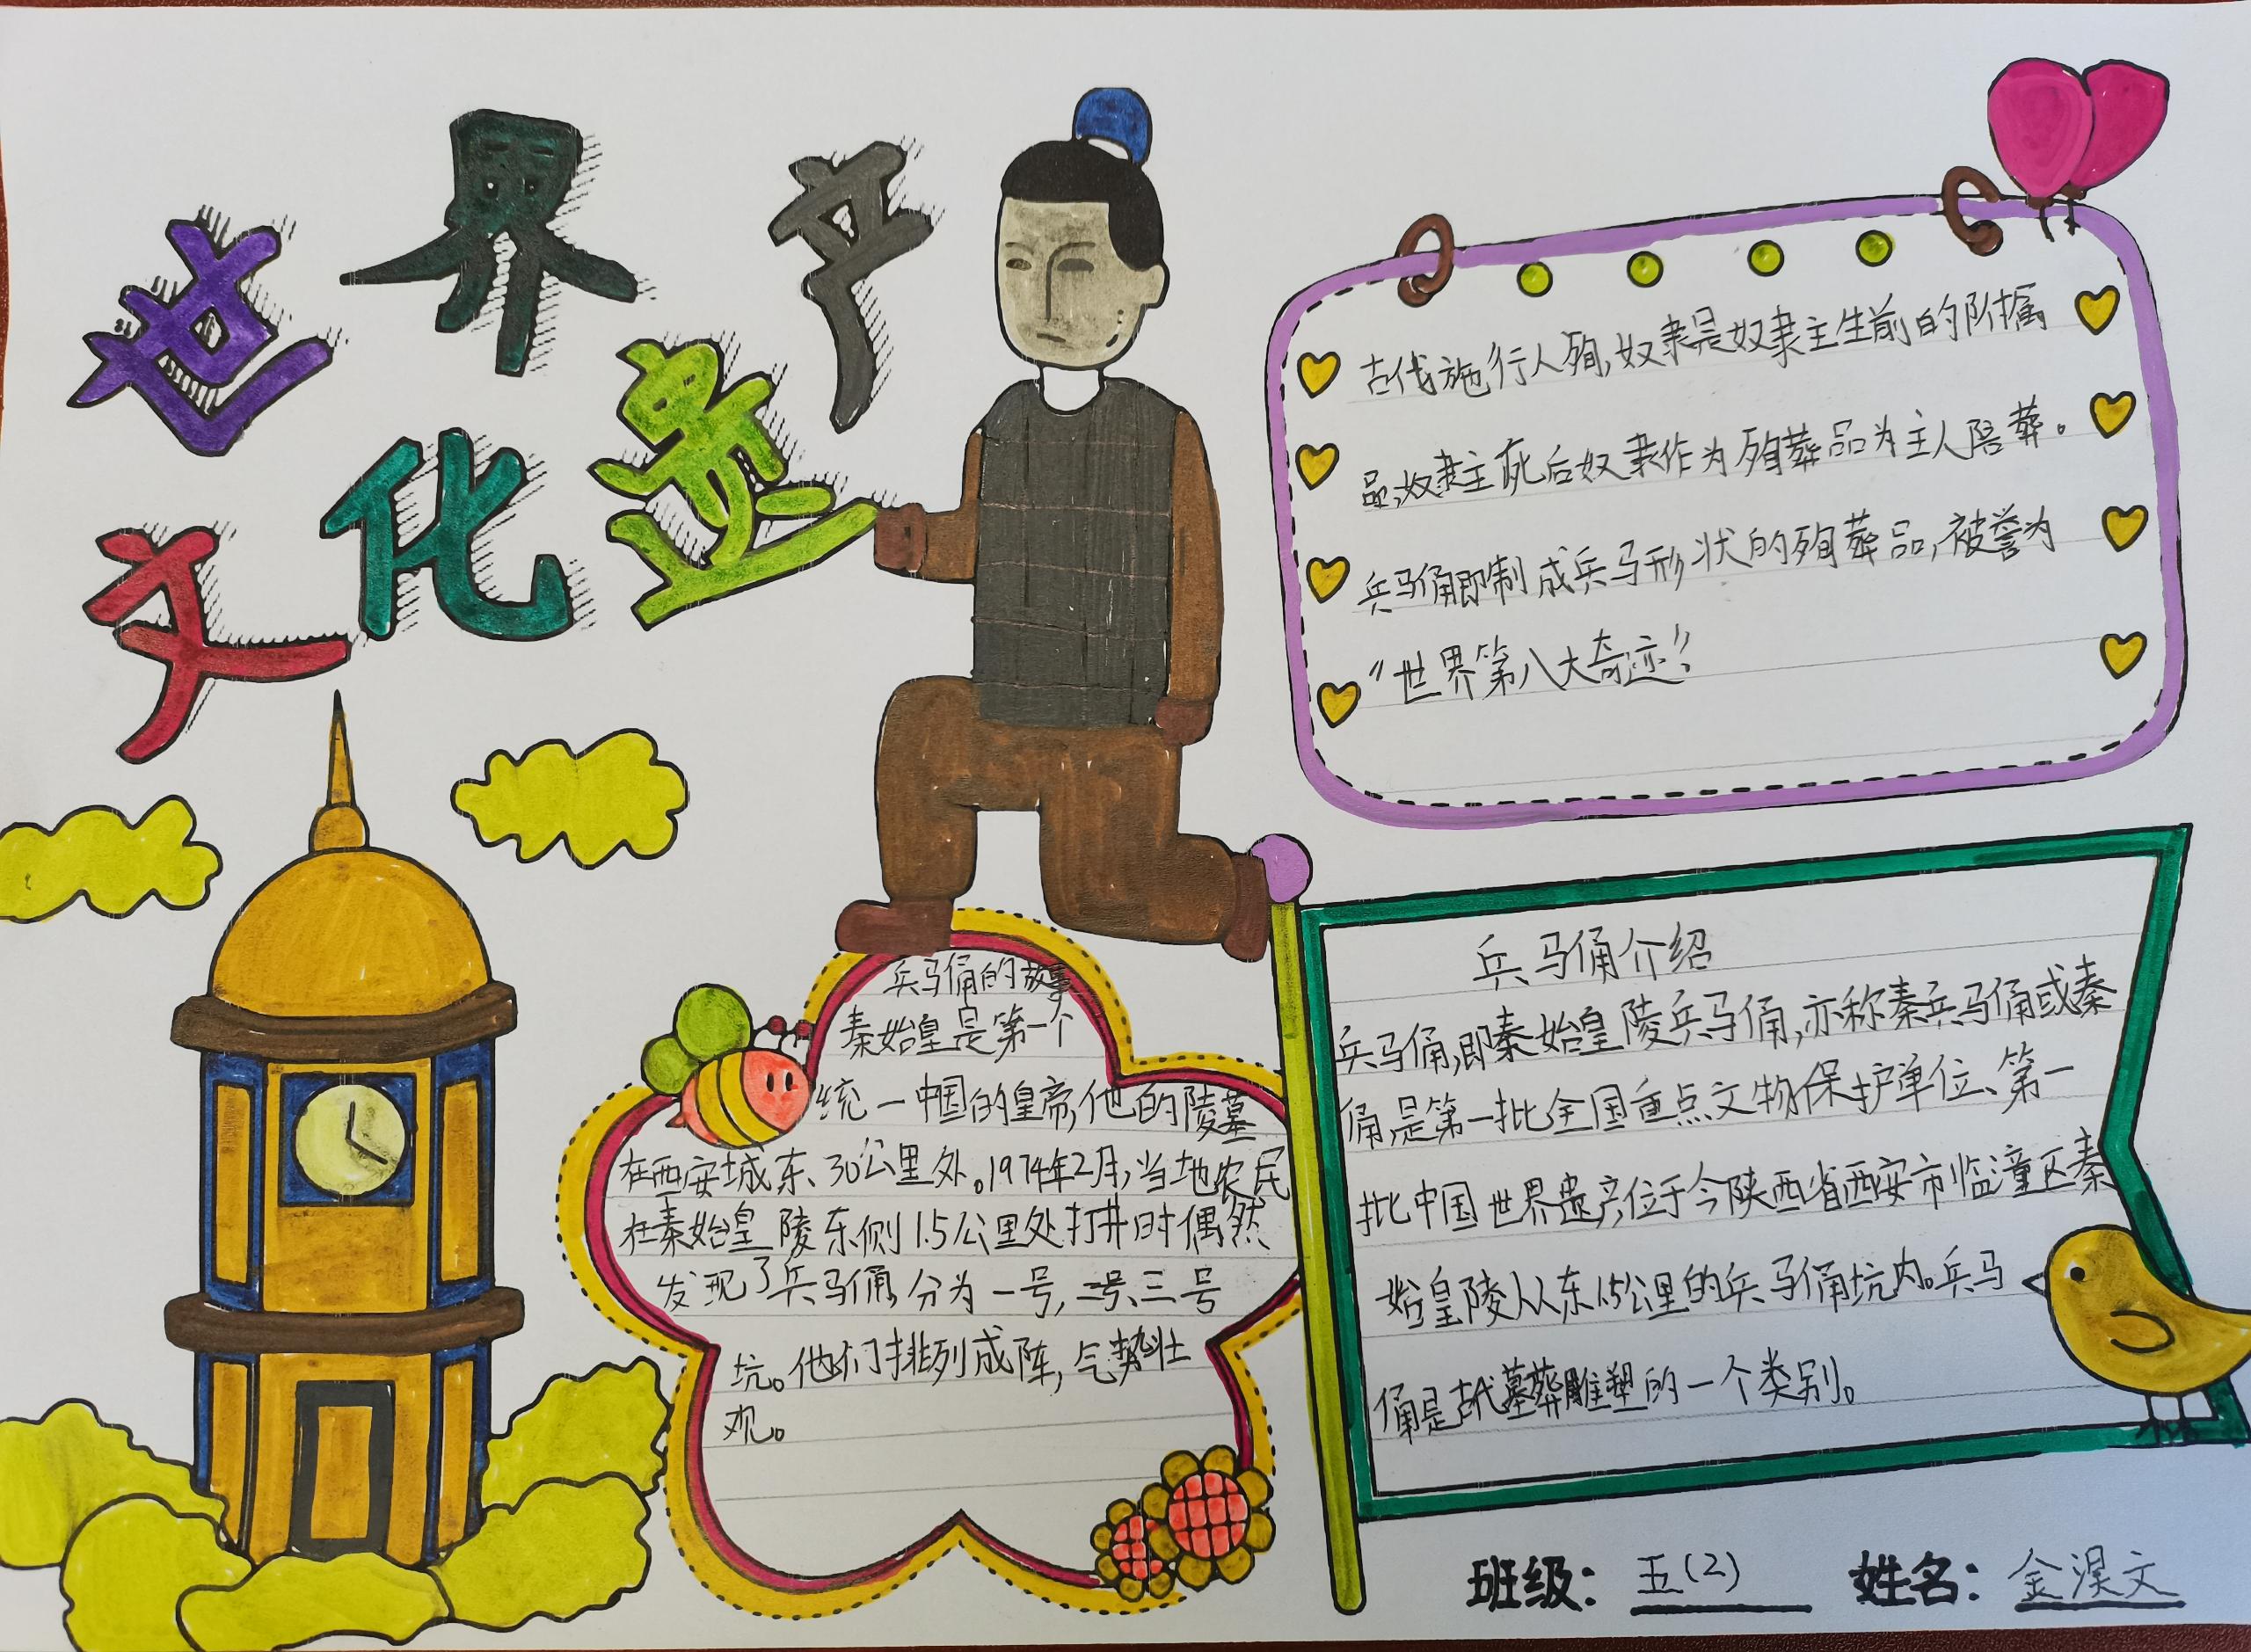 世界文化遗产
古代施行人殉,奴隶是奴隶主生前的附属
品,奴隶主死后奴隶作为殉葬品为主人陪葬。
兵马俑即制成兵马形状的殉葬品,被誉为
“世界第八大奇迹”。
兵马俑的故事
秦始皇是第一个
统一中国的皇帝,他的陵墓
在西安城东、30公里处。1974年2月,当地农民
在秦始皇陵东侧1.5公里处打井时偶然
发现了兵马俑,分为一号,二号、三号
坑。他们排列成阵,气势壮
观。
兵马俑介绍
兵马俑,即秦始皇陵兵马俑,亦称秦兵马俑或秦
俑,是第一批全国重点文物保护单位、第一
批中国世界遗产,位于今陕西省西安市临潼区秦
始皇陵以东1.5公里的兵马俑坑内。兵马
俑是古代墓葬雕塑的一个类别。
班级: 五(2) 姓名: 金淏文